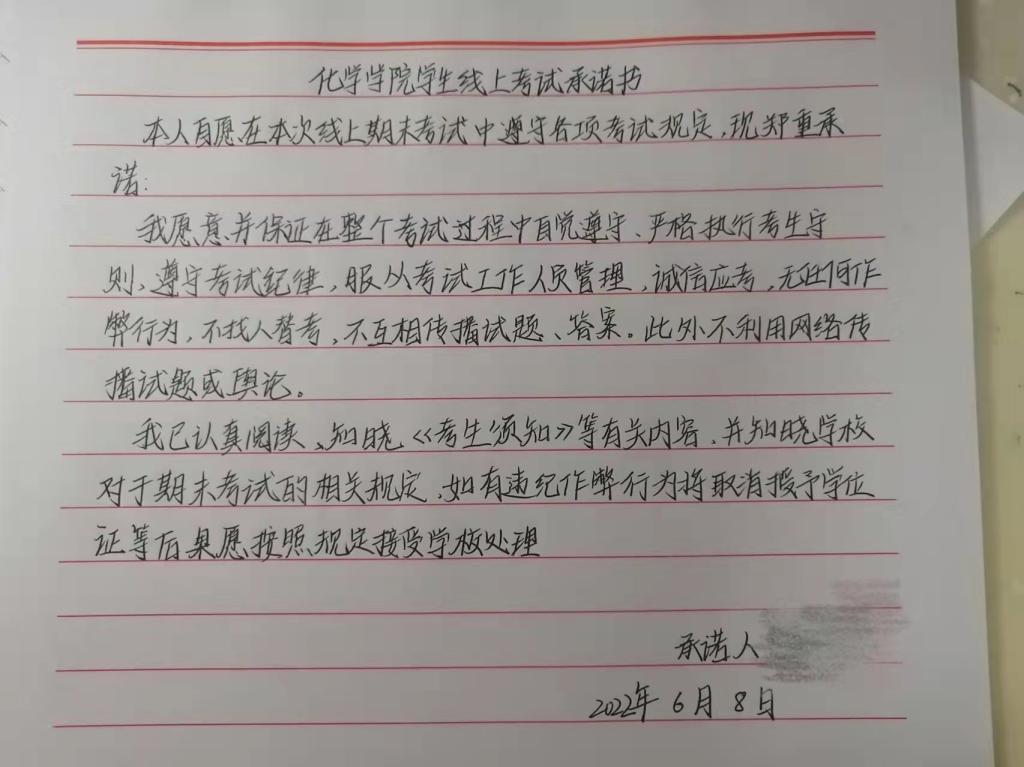 化学学院学生线上考试承诺书
本人自愿在本次线上期末考试中遵守各项考试规定,现郑重承
诺:
我愿意并保证在整个考试过程中自觉遵守、严格执行考生守
则,遵守考试纪律,服从考试工作人员管理,诚信应考,无任何作
弊行为,不找人替考,不互相传播试题、答案。此外不利用网络传
播试题或舆论。
我已认真阅读、知晓《考生须知》等有关内容,并知晓学校
对于期末考试的相关规定,如有违纪作弊行为将取消授予学位
证等后果愿按照规定接受学校处理
承诺人
2022年 6月 8日